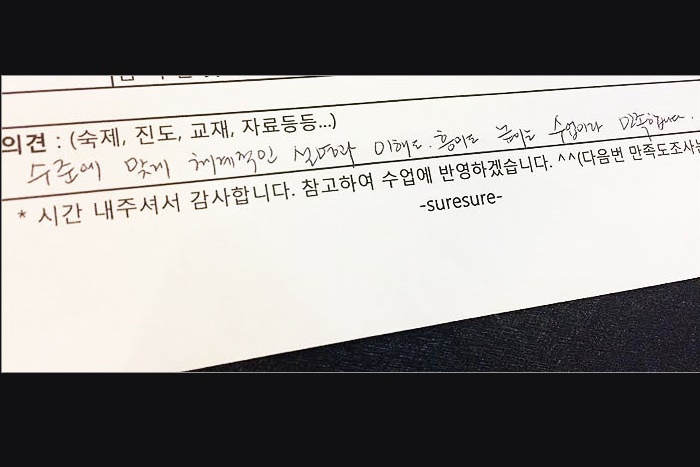 의견 : (숙제, 진도, 교재, 자료등등...)
수준에 맞게 체계적인 설명과 이해도. 흥미도 높이는 수업이라 만족합니다.
* 시간 내주셔서 감사합니다. 참고하여 수업에 반영하겠습니다. ^^(다음번 만족도조사는
-suresure-